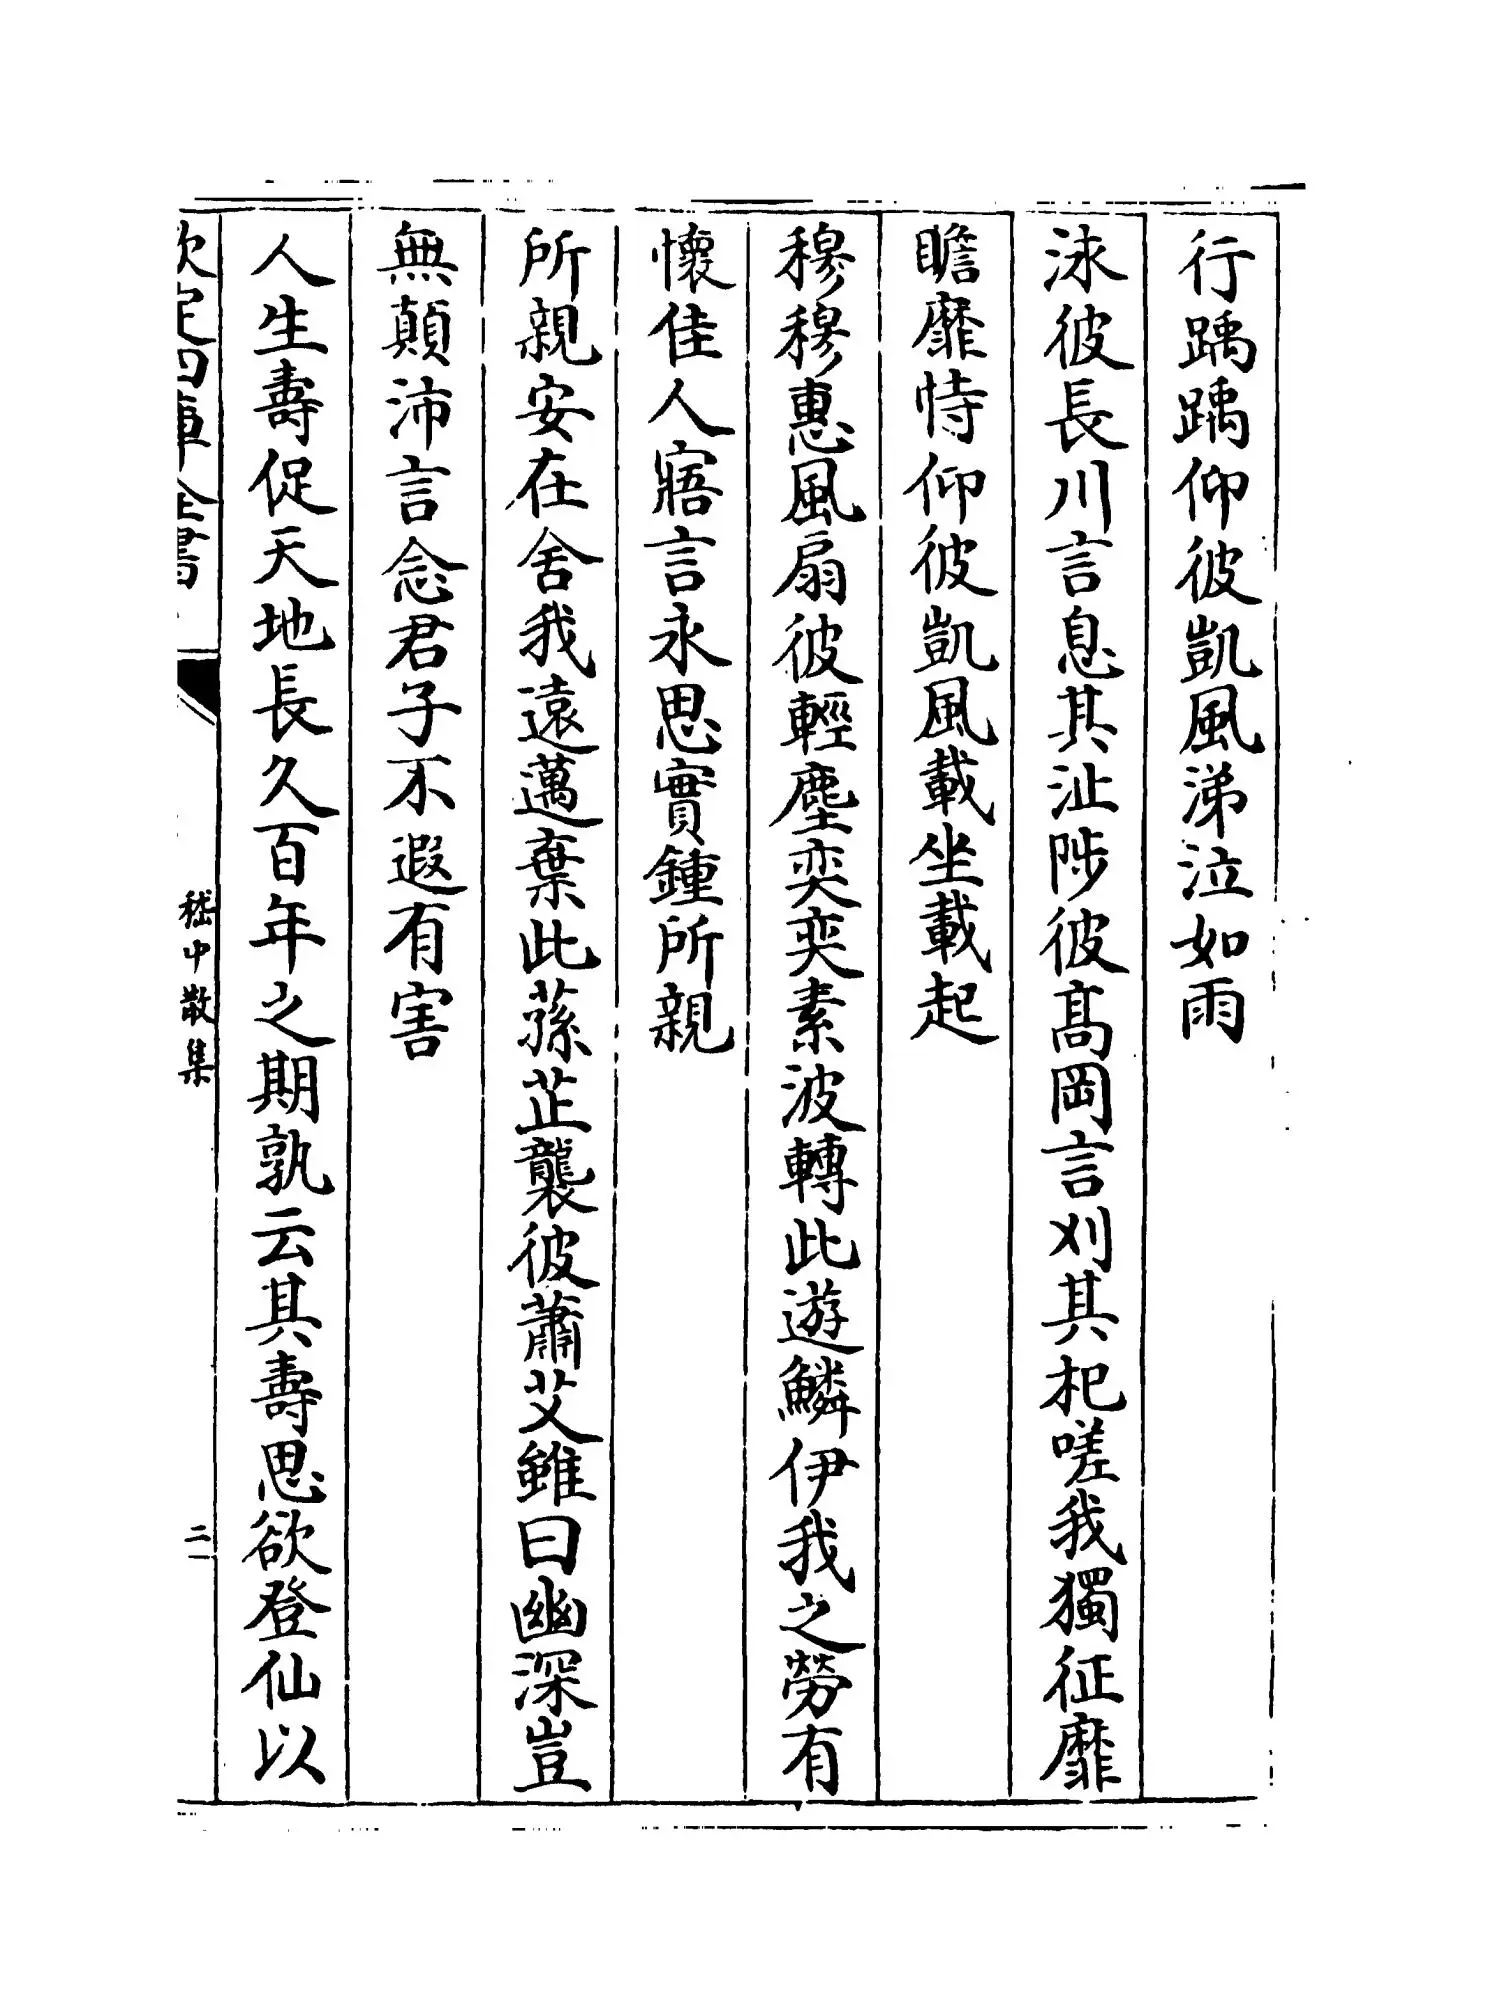 行踽踽仰彼凱風涕泣如雨
泳彼長川言息其沚陟彼髙岡言刈其杞嗟我獨征靡
瞻靡恃仰彼凱風載坐載起
穆穆惠風扇彼輕塵奕奕素波轉此遊鱗伊我之勞有
懷佳人寤言永思實鍾所親
所親安在舍我遠邁棄此蓀芷襲彼蕭艾雖曰幽深豈
無顛沛言念君子不遐有害
人生壽促天地長久百年之期孰云其壽思欲登仙以
欽定四庫全書
嵇中散集
二